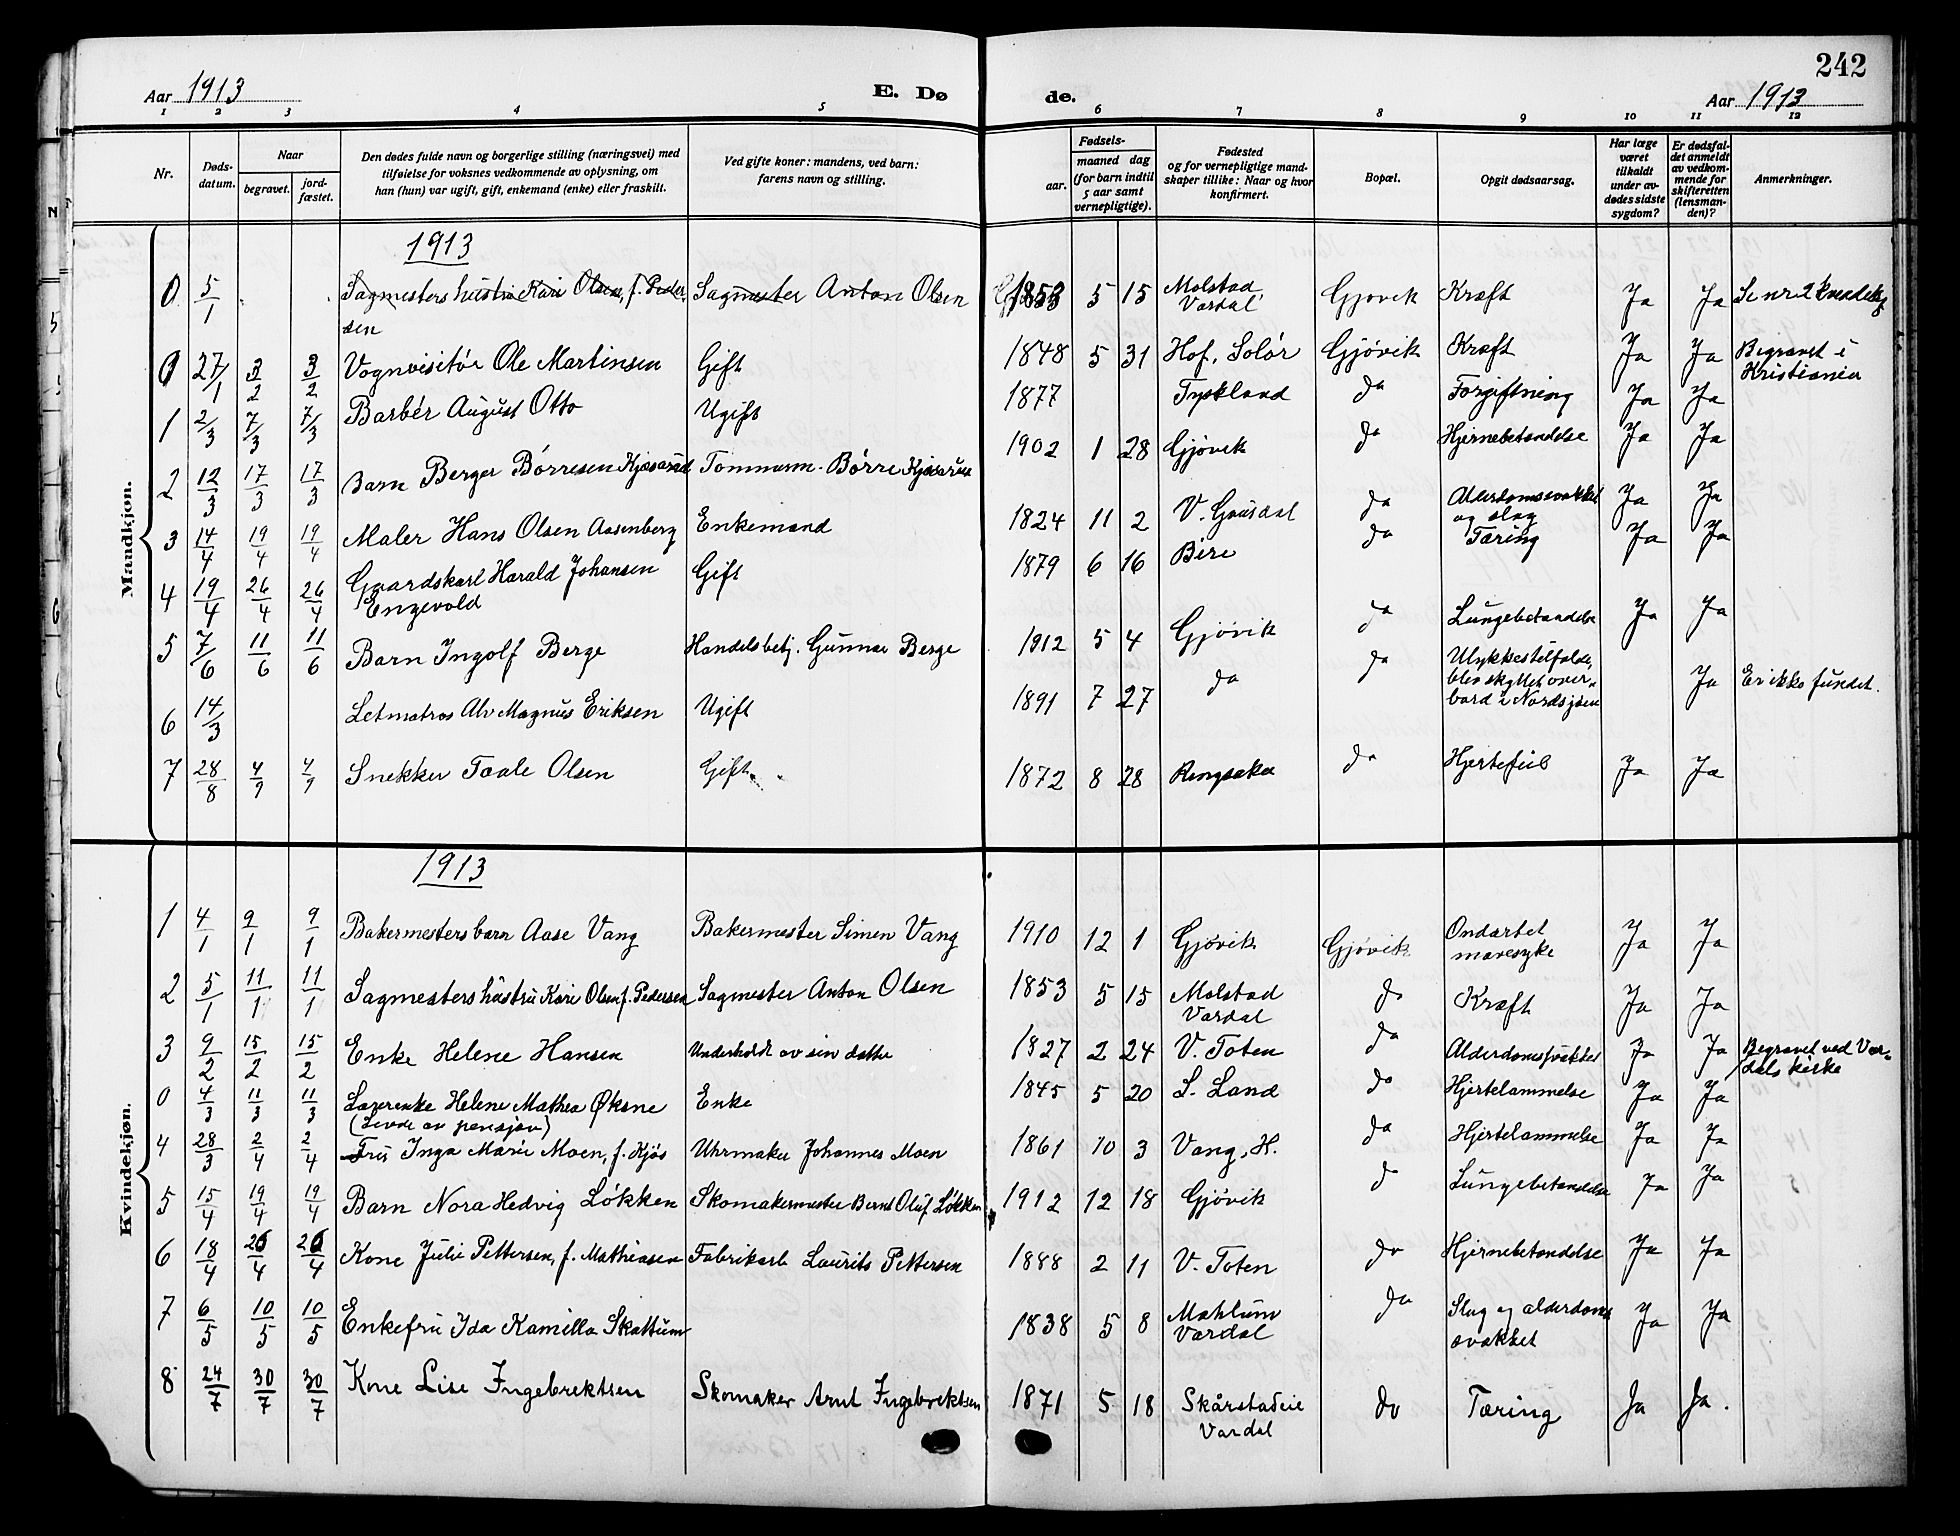 242
Aar 1913 E. Dø de. Aar 1913
1 2 3 4 5 6 7 8 9 10 11 12
Nr.
Døds-datum.
Naar
begravet.
jord-fæstet.
Den dødes fulde navn og borgerlige stilling (næringsvei) med
tilføielse for voksnes vedkommende av oplysning, om
han (hun) var ugift, gift, enkemand (enke) eller fraskilt.
Ved gifte koner: mandens, ved barn:
farens navn og stilling.
Fødsels-
aar.
maaned dag
(for barn indtil
5 aar samt
vernepligtige).
Fødested
og for vernepligtige mand-
skaper tillike: Naar og hvor
konfirmert.
Bopæl.
Opgit dødsaarsag.
Har læge
været
tilkaldt
under av-
dødes sidste
sygdom?
Er dødsfal-
det anmeldt
av vedkom-
mende for
skifteretten
(lensman-
den)?
Anmerkninger.
Mandkjøn.
1913
0 5/1 Sagmesters hustru Kari Olsen, f. Peder- Sagmester Anton Olsen 1853 5 15 Molstad Gjøvik Kræft Ja Ja Se nr 2 kvindekj.
sen Vardal
0 27/1 3/2 3/2 Vognvisitør Ole Martinsen Gift 1848 5 31 Hof, Solør Gjøvik Kræft Ja Ja Begravet i
Kristiania
1 2/3 7/3 7/3 Barbér August Otto Ugift 1877 Tyskland do Forgiftning Ja Ja
2 12/3 17/3 17/3 Barn Berger Børresen Kjøsarud Tømmerm. Børre Kjøsarud 1902 1 28 Gjøvik do Hjernebetændelse Ja Ja
3 14/4 19/4 19/4 Maler Hans Olsen Aasenberg Enkemand 1824 11 2 V. Gausdal do Alderdomssvakhet Ja Ja
og slag
4 19/4 26/4 26/4 Gaardskarl Harald Johansen Gift 1879 6 16 Biri do Tæring Ja Ja
Engevold
5 7/6 11/6 11/6 Barn Ingolf Berge Handelsbetj. Gunnar Berge 1912 5 4 Gjøvik do Lungebetændelse Ja Ja
6 14/3 Letmatros Alv Magnus Eriksen Ugift 1891 7 27 do do Ulykkestilfælde, Ja Er ikke fundet.
blev skyllet over-
bord i Nordsjøen
7 28/8 4/9 4/9 Snekker Taale Olsen Gift 1872 8 28 Ringsaker do Hjertefeil Ja Ja
Kvindekjøn.
1913
1 4/1 9/1 9/1 Bakermesters barn Aase Vang Bakermester Simen Vang 1910 12 1 Gjøvik Gjøvik Ondartet Ja Ja
mavesyke
2 5/1 11/1 11/1 Sagmesters hustru Kari Olsen f. Pedersen Sagmester Anton Olsen 1853 5 15 Molstad do Kræft Ja Ja
Vardal
3 9/2 15/2 15/2 Enke Helene Hansen Underholdt av sin datter 1827 2 24 V. Toten do Alderdomssvakhet Ja Ja Begravet ved Var-
dals kirke
0 4/3 11/3 11/3 Lærerenke Helene Mathea Øksne Enke 1845 5 20 S. Land do Hjertelammelse Ja Ja
(Levde av pensjon)
4 28/3 2/4 2/4 Fru Inga Marie Moen, f. Kjøs Uhrmaker Johannes Moen 1861 10 3 Vang, H. do Hjertelammelse Ja Ja
5 15/4 19/4 19/4 Barn Nora Hedvig Løkken Skomakermester Bernt Oluf Løkken 1912 12 18 Gjøvik do Lungebetændelse Ja Ja
6 18/4 26/4 26/4 Kone Julie Pettersen, f. Mathiasen Fabrikarb Laurits Pettersen 1888 2 11 V. Toten do Hjernebetændelse Ja Ja
7 6/5 10/5 10/5 Enkefru Ida Kamilla Skattum 1838 5 8 Mæhlum do Slag og alderdoms Ja Ja
Vardal svakhet
8 24/7 30/7 30/7 Kone Lise Ingebrektsen Skomaker Arnt Ingebrektsen 1871 5 18 Skårstadeie do Tæring Ja Ja.
Vardal